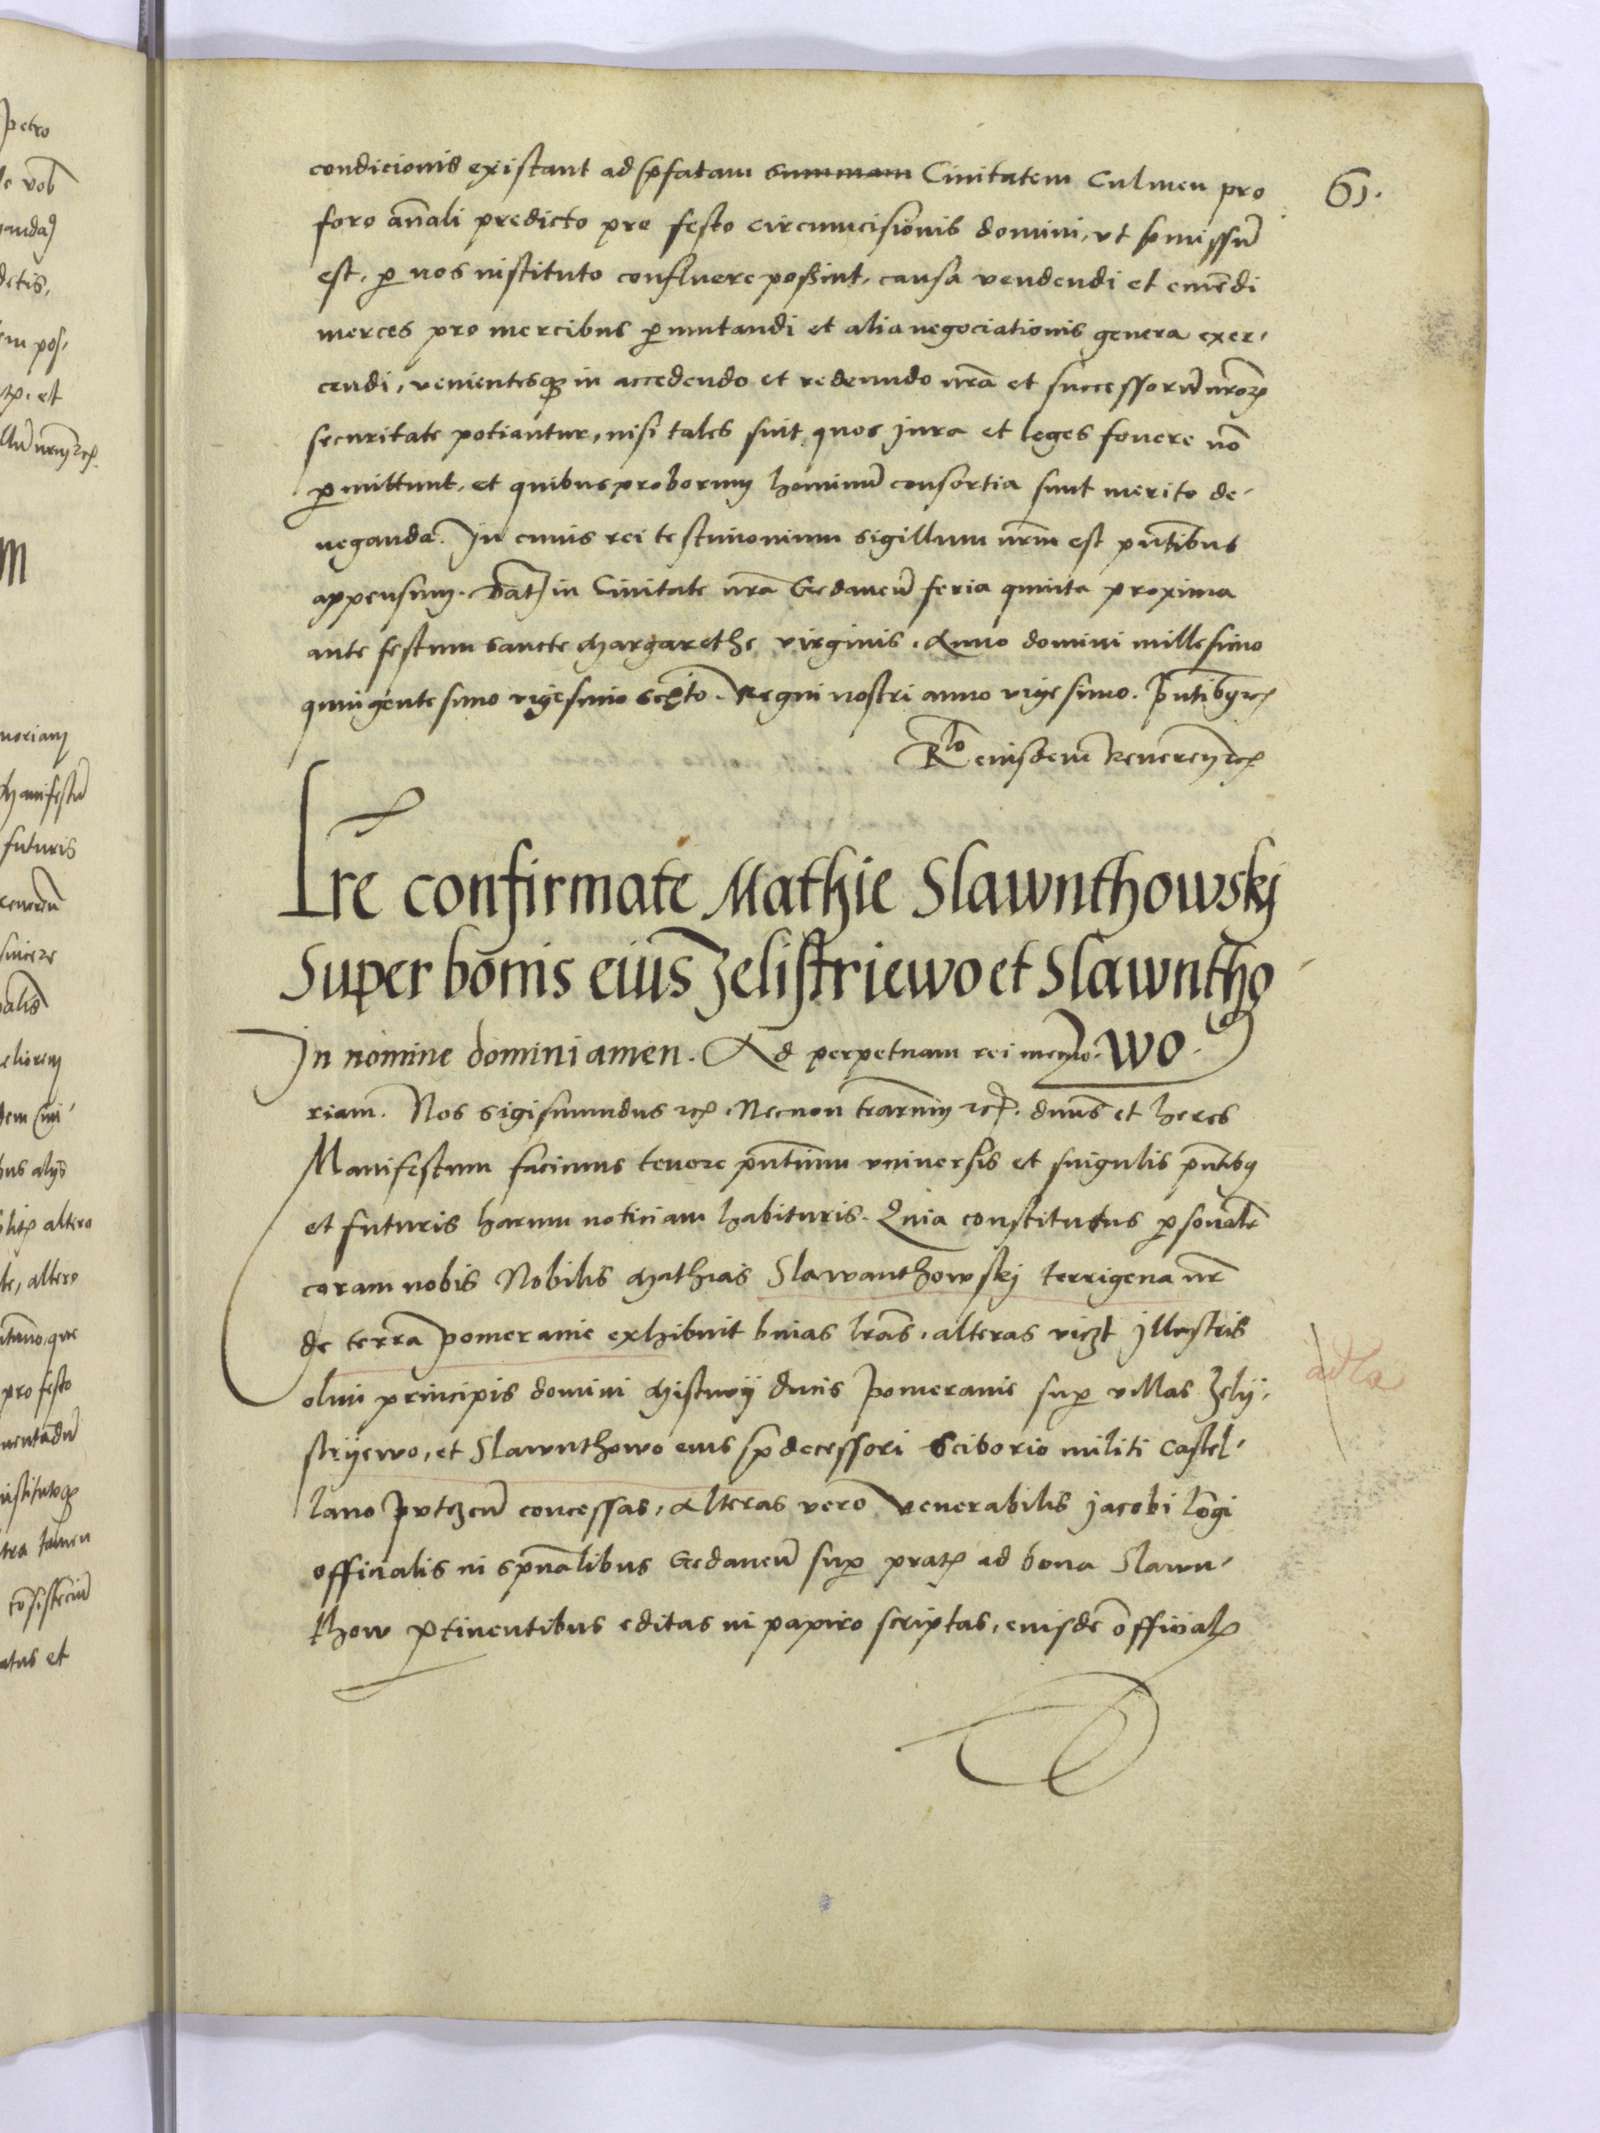 61.
condicionis existant ad p̄fatam summam Ciuitatem Culmen pro
foro an̄ali predicto pro festo circumcisionis domini, vt p̄missū
est, ꝑ nos instituto confluere possint, causa vendendi et emēdi
merces pro mercibus ꝑmutandi et alia negociationis genera exer-
cendi, venientesqꝫ in accedendo et redeundo nr̄a et successorū nr̄oꝝ
securitate potiantur, nisi tales sint quos jura et leges fouere nō
ꝑmittunt, et quibus proborum hominū consortia sunt merito de-
neganda. In cuius rei testimonium sigillum nr̄m est pn̄tibus
appensum. Dat̄ in Ciuitate nr̄a Gedaneū feria quinta proxima
ante festum sancte Margarethe virginis. Anno domini millesimo
quingentesimo vigesimo sexto. Regni nostri anno vigesimo. Pn̄tibꝫ ꝛcꝭ
Rlo eiusdem Reueren ꝛcꝭ
Lr̄e confirmate Mathie Slawnthowskj
Super bonis eius Zelistriewo et Slawntho
wo.
In nomine domini amen. Ad perpetuam rei memo-
riam. Nos Sigismundus ꝛcꝭ. Necnon tr̄arum ꝛcꝭ. dn̄us et heres
Manifestum facimus tenore pn̄tium vniuersis et singulis pn̄tibꝫ
et futuris harum noticiam habituris. Quia constitutus ꝑsonalr̄
coram nobis Nobilis Mathias Slawanthowskj terrigena nr̄
de terra pomeranie exhibuit binas lr̄as, alteras viczt illustris
olim principis domini Mistwij ducis Pomeranie suꝑ villas Zelij-
strijewo, et Slawnthowo eius p̄decessori Sciborio militi Castel-
lano Putzcū concessas, Alteras vero Venerabilis Jacobi lōgi
officialis in spūalibus Gedaneū suꝑ pratꝭ ad bona Slawn-
thow ꝑtinentibus editas in papiro scriptas, eiusdē officialꝭ